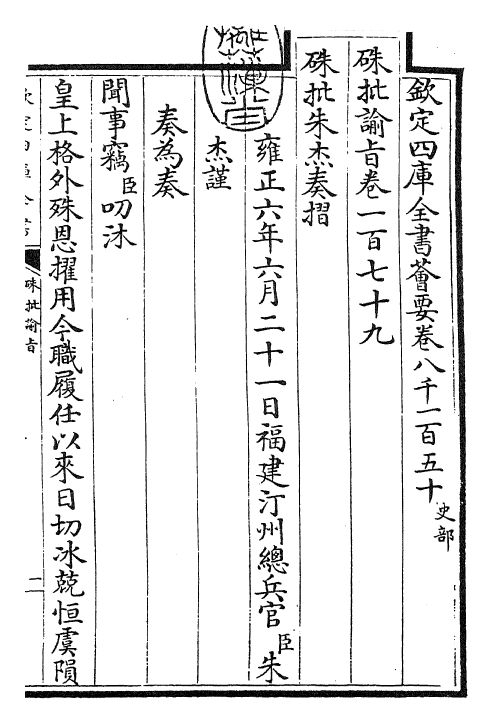 欽定四庫全書薈要卷八千一百五十 史部
硃批諭旨卷一百七十九
硃批朱杰奏摺
雍正六年六月二十一日福建汀州總兵官臣朱
杰謹
奏為奏
聞事竊臣叨沐
皇上格外殊恩擢用今職履任以來日切冰兢恒虞隕
硃批諭旨